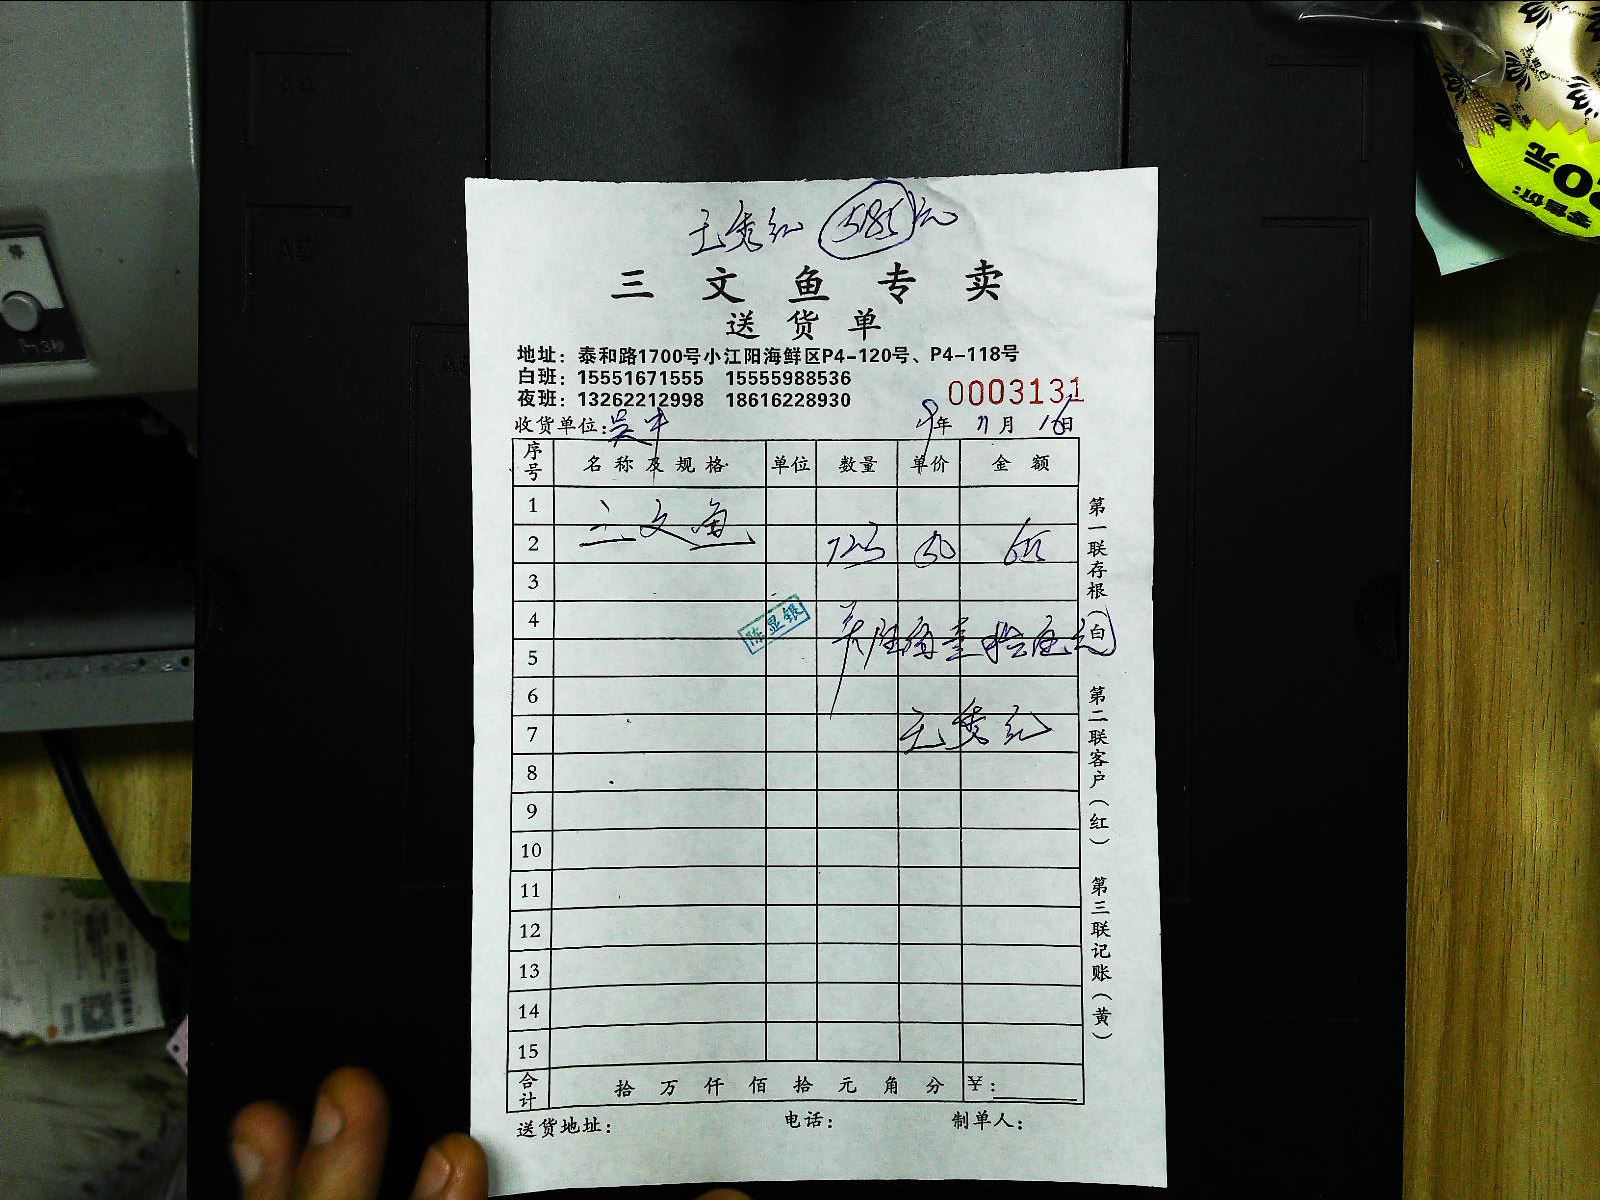 王秀红 585元
三文鱼专卖
送货单
地址：泰和路1700号小江阳海鲜区P4-120号、P4-118号
白班：15551671555 15555988536
夜班：13262212998 18616228930
0003131
收货单位：吴中 19年 11月 16日
序号 名称及规格 单位 数量 单价 金额
1
三文鱼
2
3
4
陈显银
5
6
7 王秀红
8
9
10
11
12
13
14
15
合计 拾 万 仟 佰 拾 元 角 分 ￥：
送货地址： 电话： 制单人：
第一联存根（白） 第二联客户（红） 第三联记账（黄）
A4
A5
零售价：